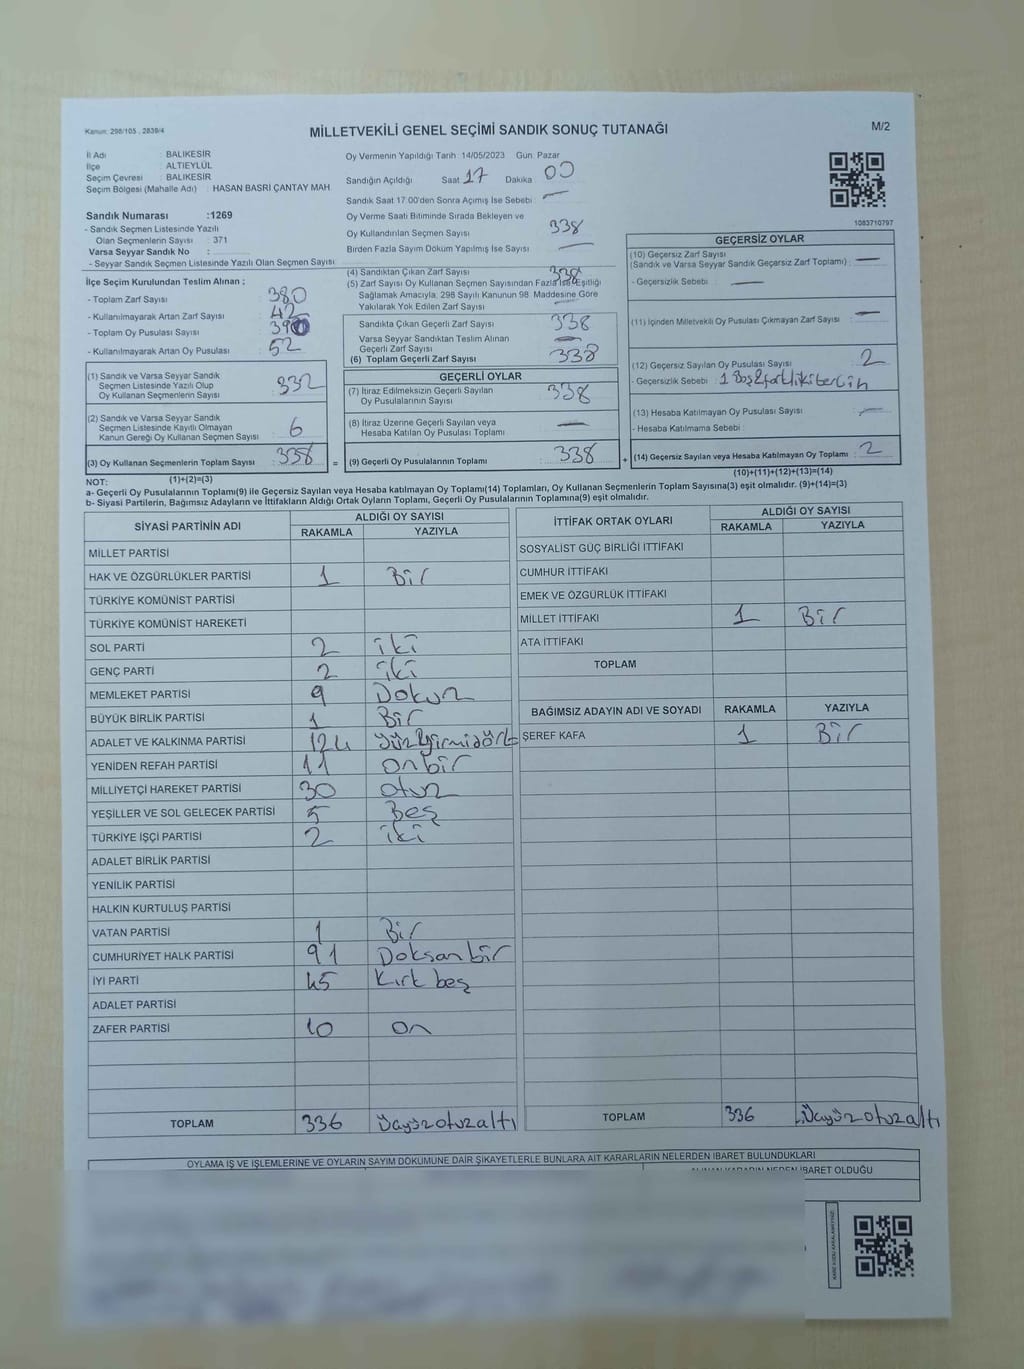 Kanun: 298/105 , 2839/4
MİLLETVEKİLİ GENEL SEÇİMİ SANDIK SONUÇ TUTANAĞI
M/2
İl Adı : BALIKESİR
İlçe : ALTIEYLÜL
Seçim Çevresi : BALIKESİR
Seçim Bölgesi (Mahalle Adı) : HASAN BASRİ ÇANTAY MAH.
Sandık Numarası :1269
- Sandık Seçmen Listesinde Yazılı
Olan Seçmenlerin Sayısı : 371
Varsa Seyyar Sandık No :
- Seyyar Sandık Seçmen Listesinde Yazılı Olan Seçmen Sayısı :
Oy Vermenin Yapıldığı Tarih :14/05/2023 Gün: Pazar
Sandığın Açıldığı Saat 17 Dakika 00
Sandık Saat 17.00'den Sonra Açımış İse Sebebi : —
Oy Verme Saati Bitiminde Sırada Bekleyen ve
Oy Kullandırılan Seçmen Sayısı : 338
Birden Fazla Sayım Döküm Yapılmış İse Sayısı : —
1083710797
İlçe Seçim Kurulundan Teslim Alınan ;
- Toplam Zarf Sayısı : 380
- Kullanılmayarak Artan Zarf Sayısı : 42
- Toplam Oy Pusulası Sayısı : 390
- Kullanılmayarak Artan Oy Pusulası : 52
(1) Sandık ve Varsa Seyyar Sandık
Seçmen Listesinde Yazılı Olup
Oy Kullanan Seçmenlerin Sayısı : 332
(2) Sandık ve Varsa Seyyar Sandık
Seçmen Listesinde Kayıtlı Olmayan
Kanun Gereği Oy Kullanan Seçmen Sayısı : 6
(3) Oy Kullanan Seçmenlerin Toplam Sayısı : 338
(4) Sandıktan Çıkan Zarf Sayısı : 338
(5) Zarf Sayısı Oy Kullanan Seçmen Sayısından Fazla İse Eşitliği
Sağlamak Amacıyla, 298 Sayılı Kanunun 98. Maddesine Göre
Yakılarak Yok Edilen Zarf Sayısı : —
Sandıkta Çıkan Geçerli Zarf Sayısı : 338
Varsa Seyyar Sandıktan Teslim Alınan
Geçerli Zarf Sayısı : —
(6) Toplam Geçerli Zarf Sayısı : 338
GEÇERLİ OYLAR
(7) İtiraz Edilmeksizin Geçerli Sayılan
Oy Pusulalarının Sayısı : 338
(8) İtiraz Üzerine Geçerli Sayılan veya
Hesaba Katılan Oy Pusulası Toplamı : —
= (9) Geçerli Oy Pusulalarının Toplamı : 338
GEÇERSİZ OYLAR
(10) Geçersiz Zarf Sayısı
(Sandık ve Varsa Seyyar Sandık Geçersiz Zarf Toplamı) : —
- Geçersizlik Sebebi : —
(11) İçinden Milletvekili Oy Pusulası Çıkmayan Zarf Sayısı : —
(12) Geçersiz Sayılan Oy Pusulası Sayısı : 2
- Geçersizlik Sebebi : 1 Boş
(13) Hesaba Katılmayan Oy Pusulası Sayısı : —
- Hesaba Katılmama Sebebi :
+ (14) Geçersiz Sayılan veya Hesaba Katılmayan Oy Toplamı : 2
NOT: (1)+(2)=(3)
(10)+(11)+(12)+(13)=(14)
a- Geçerli Oy Pusulalarının Toplamı(9) ile Geçersiz Sayılan veya Hesaba katılmayan Oy Pusulası Toplamı(14) Toplamları, Oy Kullanan Seçmenlerin Toplam Sayısına(3) eşit olmalıdır. (9)+(14)=(3)
b- Siyasi Partilerin, Bağımsız Adayların ve İttifakların Aldığı Ortak Oyların Toplamı, Geçerli Oy Pusulalarının Toplamına(9) eşit olmalıdır.
SİYASİ PARTİNİN ADI ALDIĞI OY SAYISI
RAKAMLA YAZIYLA
MİLLET PARTİSİ
HAK VE ÖZGÜRLÜKLER PARTİSİ 1 Bir
TÜRKİYE KOMÜNİST PARTİSİ
TÜRKİYE KOMÜNİST HAREKETİ
SOL PARTİ 2 iki
GENÇ PARTİ 2 iki
MEMLEKET PARTİSİ 9 Dokuz
BÜYÜK BİRLİK PARTİSİ 1 Bir
ADALET VE KALKINMA PARTİSİ 124 Yüz Yirmidört
YENİDEN REFAH PARTİSİ 11 onbir
MİLLİYETÇİ HAREKET PARTİSİ 30 otuz
YEŞİLLER VE SOL GELECEK PARTİSİ 5 Beş
TÜRKİYE İŞÇİ PARTİSİ 2 iki
ADALET BİRLİK PARTİSİ
YENİLİK PARTİSİ
HALKIN KURTULUŞ PARTİSİ
VATAN PARTİSİ 1 Bir
CUMHURİYET HALK PARTİSİ 91 Doksan bir
İYİ PARTİ 45 Kırk beş
ADALET PARTİSİ
ZAFER PARTİSİ 10 On
TOPLAM 336 Üçyüzotuzaltı
İTTİFAK ORTAK OYLARI ALDIĞI OY SAYISI
RAKAMLA YAZIYLA
SOSYALİST GÜÇ BİRLİĞİ İTTİFAKI
CUMHUR İTTİFAKI
EMEK VE ÖZGÜRLÜK İTTİFAKI
MİLLET İTTİFAKI 1 Bir
ATA İTTİFAKI
TOPLAM
BAĞIMSIZ ADAYIN ADI VE SOYADI RAKAMLA YAZIYLA
ŞEREF KAFA 1 Bir
TOPLAM 336 Üçyüzotuzaltı
OYLAMA İŞ VE İŞLEMLERİNE VE OYLARIN SAYIM DÖKÜMÜNE DAİR ŞİKAYETLERLE BUNLARA AİT KARARLARIN NELERDEN İBARET BULUNDUKLARI
ALINAN KARARIN NEDEN İBARET OLDUĞU